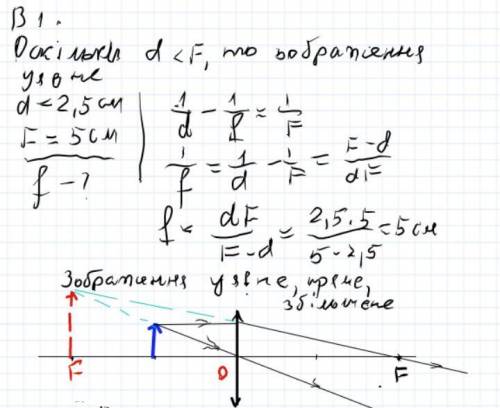 В 1.
Оскільки d < F, то зображення
уявне
d = 2,5 см
F = 5 см
f - ?
1/d - 1/f = 1/F
1/f = 1/d - 1/F = F-d/dF
f = dF/F-d = 2,5·5/5-2,5 = 5 см
Зображення уявне, пряме,
збільшене
F O F